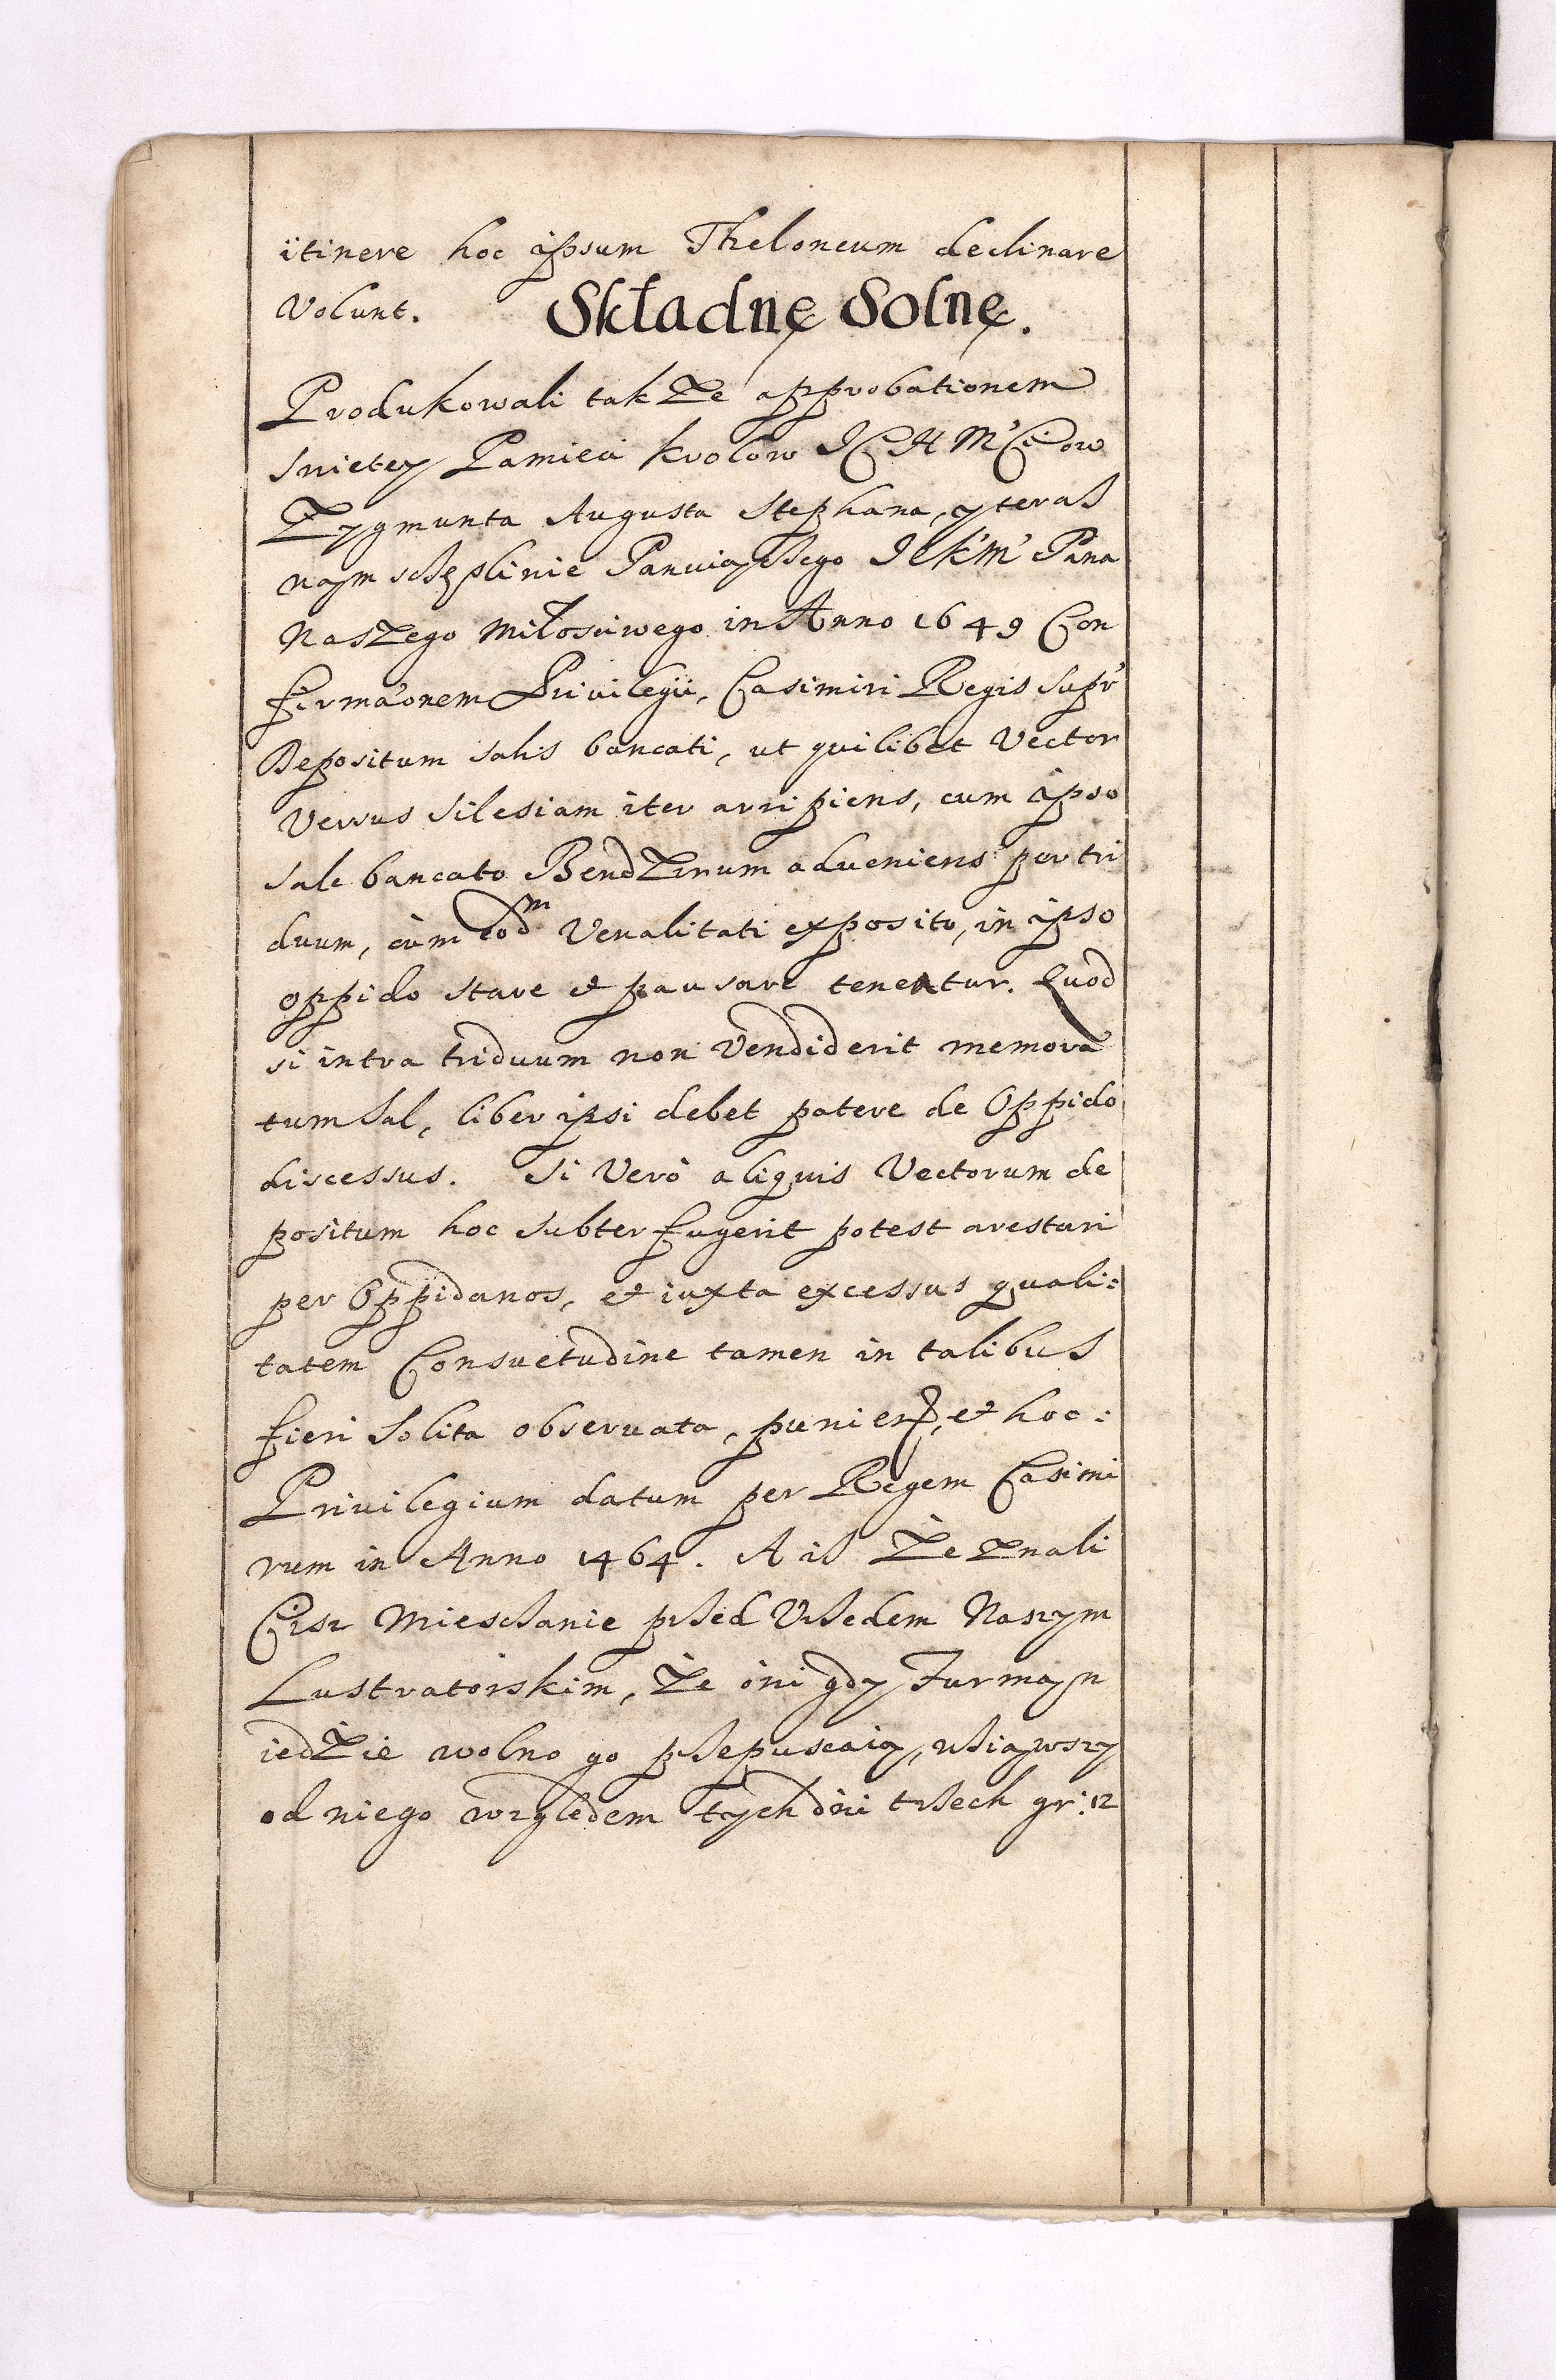 itinere hoc ipsum Theloneum declinare
Volunt. Składnę Solnę.
Produkowali takZe approbationem
Swietey Pamieci krolow ICH M'Ciow
Zygmunta Augusta Stephana, y teras
nam sczęslinie Panuiącsego IekM' Pana
NasZego Miłosciwego in Anno 1649 Con
firma'onem Priuilegii, Casimiri Regis Supr'
Depositum salis bancati, ut quilibet Vector
Versus Silesiam iter arripiens, cum ipso
Sale bancato BendZinum adueniens per tri
duum, cum eod^m Venalitati exposito, in ipso
oppido stare et pausare teneatur. Quod
si intra triduum non Vendiderit memora
tum Sal, liber ipsi debet patere de Oppido
discessus. Si Verò aliquis Vectorum de
positum hoc Subterfugerit potest arestari
per Oppidanos, et iuxta excessus quali:
tatem Consuetudine tamen in talibus
fieri Solita obseruata, punier, et hoc:
Priuilegium datum per Regem Casimi
rum in Anno 1464. A is Żeznali
Cisz Miescsanie przed Vrsedem Naszym
Lustratorskim, Że oni gdy Furmayn
iedZie wolno go przepuscaią, wsiąwszy
od niego wzgledem tych dni trsech gr: 12